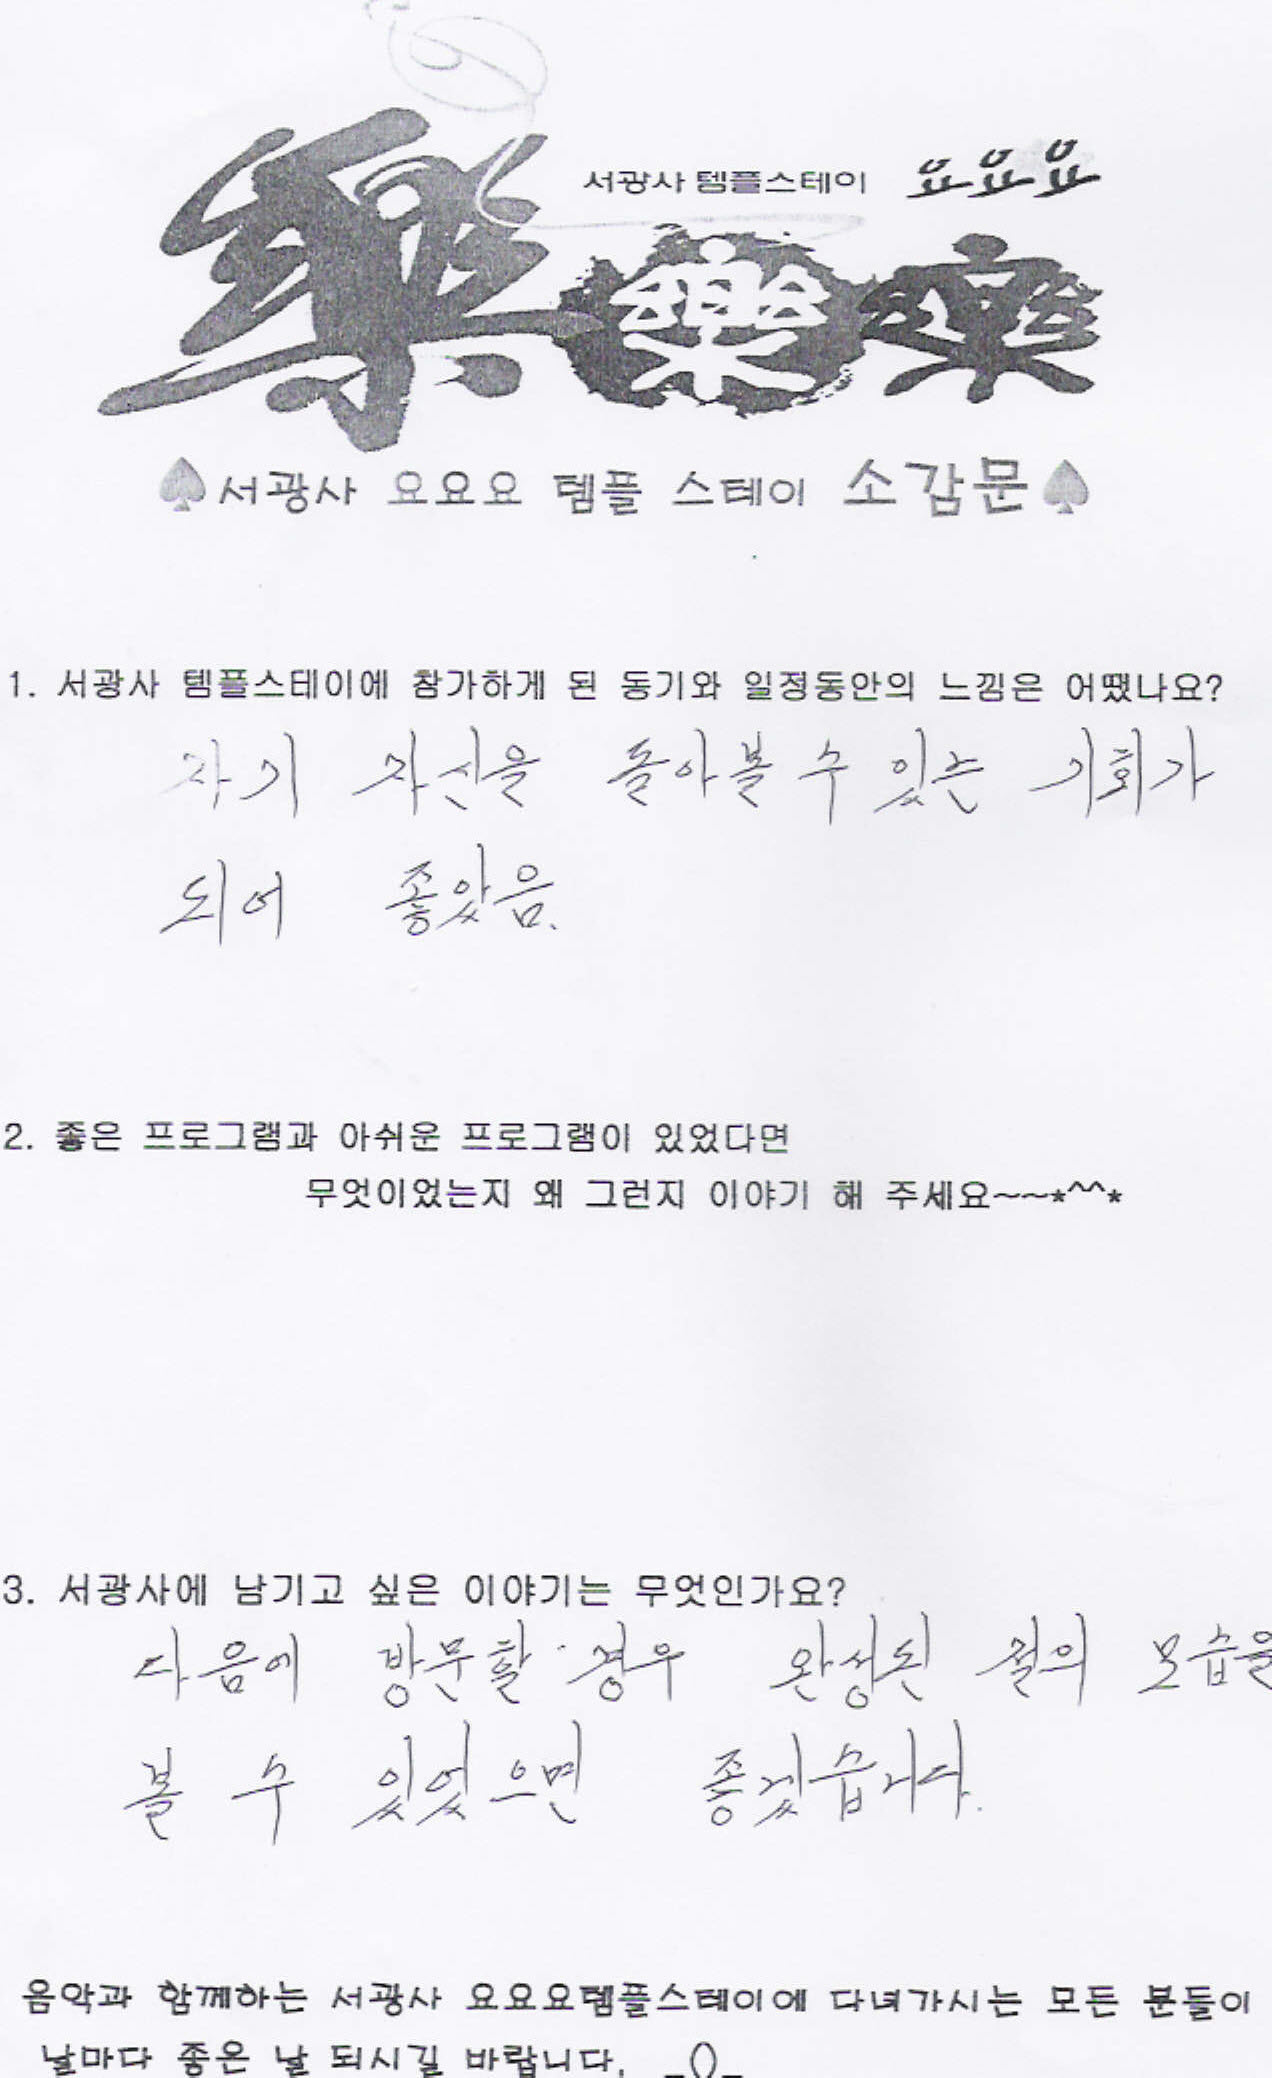 서광사 템플스테이 요요요
樂樂樂
♠서광사 요요요 템플 스테이 소감문♠
1. 서광사 템플스테이에 참가하게 된 동기와 일정동안의 느낌은 어땠나요?
자기 자신을 돌아볼 수 있는 기회가
되어 좋았음.
2. 좋은 프로그램과 아쉬운 프로그램이 있었다면
무엇이었는지 왜 그런지 이야기 해 주세요~~*^^*
3. 서광사에 남기고 싶은 이야기는 무엇인가요?
다음에 방문할 경우 완성된 절의 모습을
볼 수 있었으면 좋겠습니다.
음악과 함께하는 서광사 요요요템플스테이에 다녀가시는 모든 분들이
날마다 좋은 날 되시길 바랍니다. _()_